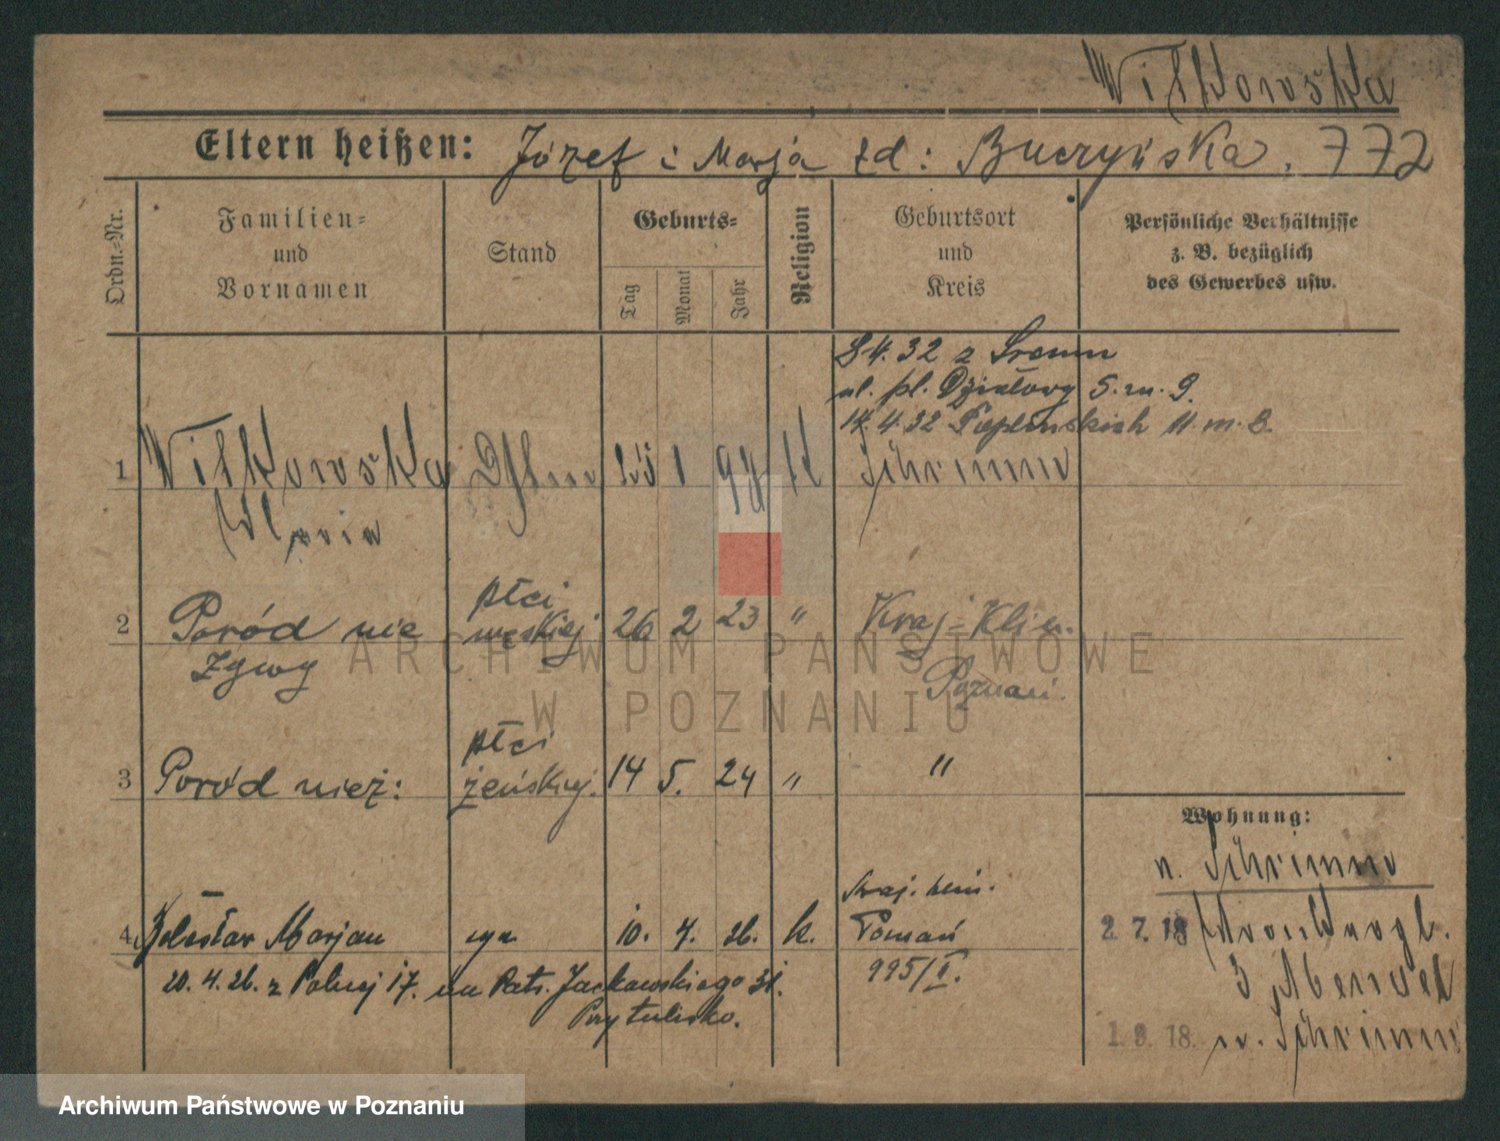 Witkowska
Eltern heißen: Józef i Marja zd: Buczyńska. 772
Ordn.=Nr.
Familien=
und
Vornamen
Stand
Geburts=
Tag
Monat
Jahr
Religion
Geburtsort
und
Kreis
Persönliche Verhältnisse
z. B. bezüglich
des Gewerbes usw.
4. 32 z Śremu
ul. pl. Działowy 5. m. 9.
14. 4. 32 11 m. 8.
1 Witkowska 1 Schrimm
Maria
2 Poród nie płci męskiej 26 2 23 " Kraj= Klin.
żywy Poznań.
3 Poród nież: płci żeńskiej. 14 5. 24 " "
Wohnung:
n. Schrimm
Kraj. klin.
4. Bolesław Marjan syn 10. 4. 26. k. Poznań
995/II.
20. 4. 26. z Polnej 17. na Patr. Jackowskiego 31.
Przytulisko.
2. 7. 18
1. 9. 18. n. Schrimm
ARCHIWUM PAŃSTWOWE
W POZNANIU
Archiwum Państwowe w Poznaniu